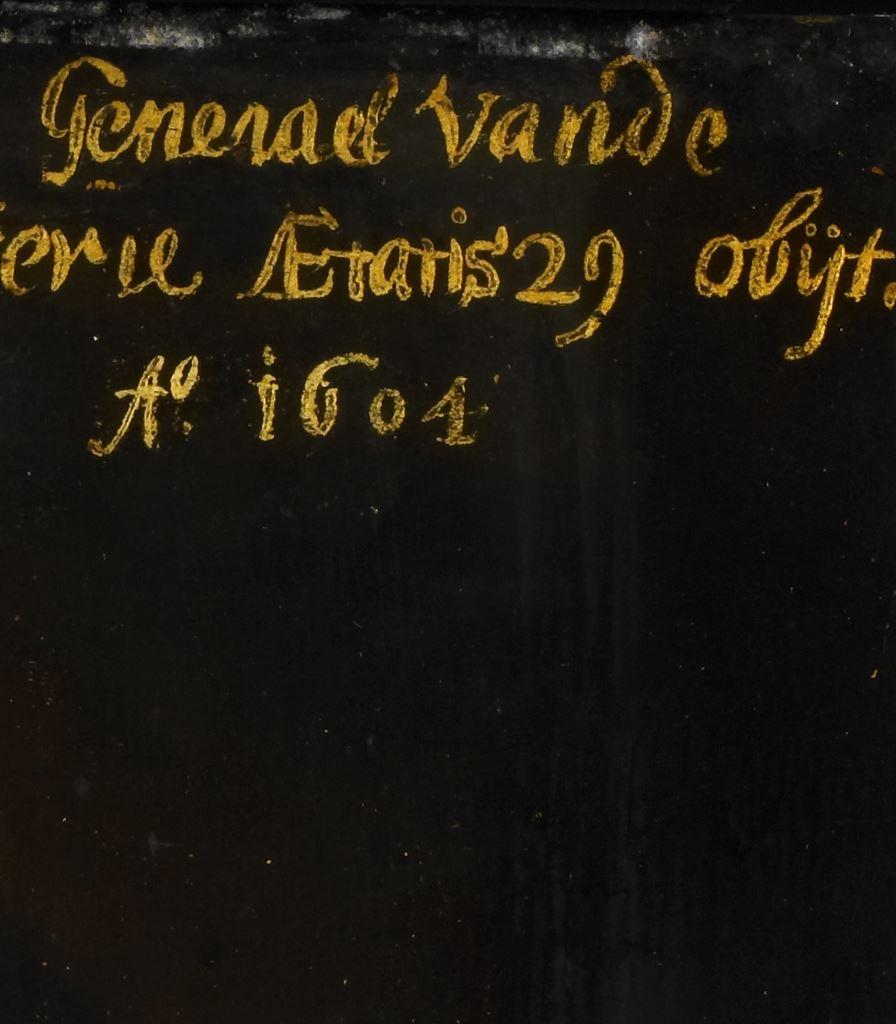 Generael vande
erie Ætatis 29 obijt.
Aº. 1604